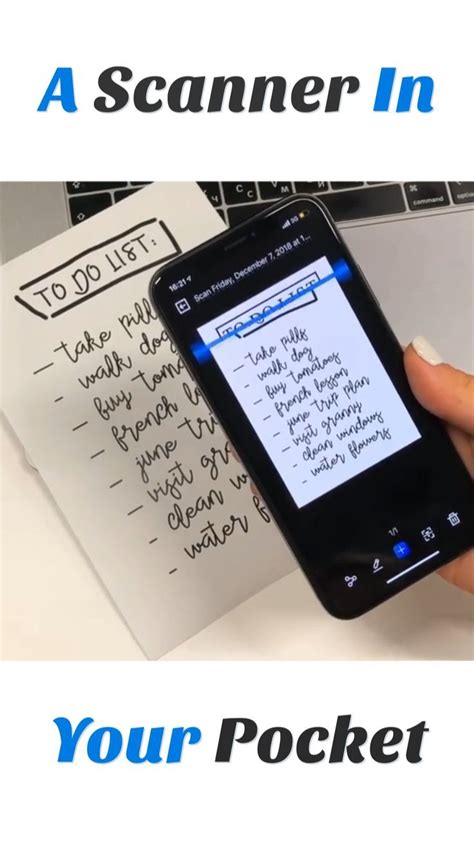 A Scanner In
TO DO LIST:
- take pills
- walk dog
- buy tomatoes
- french lesson
- june trip
- visit gra
- clean w
- water f
command
option
16:21
3G
Scan Friday, December 7, 2018 at 1...
TO DO LIST
- take pills
- walk dog
- buy tomatoes
- french lesson
- june trip plan
- visit granny
- clean windows
- water flowers
1/1
Your Pocket